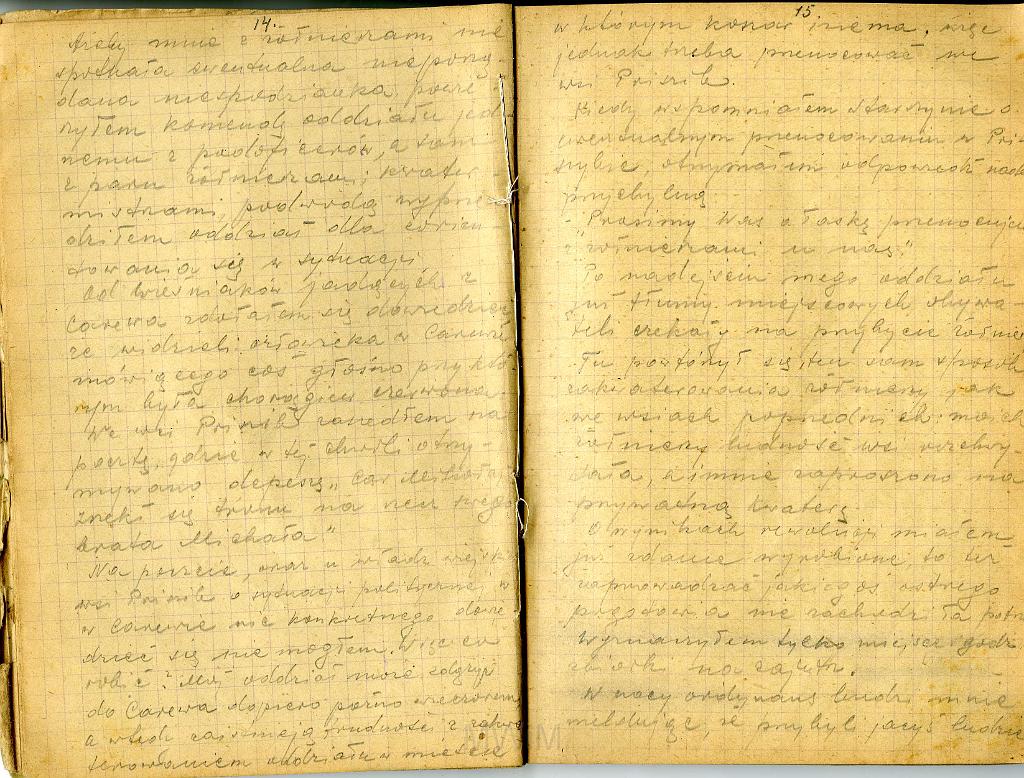 14.
Ażeby mnie z żołnierzami nie
spotkała ewentualna niepożą-
dana niespodzianka powie-
rzyłem komendę oddziału jed-
nemu z podoficerów, a sam
z paru żołnierzami, kwater-
mistrzami, podwodą wyprze-
dziłem oddział dla zorien-
towania się w sytuacji.
Od wieśniaków jadących z
Carewa zdołałem się dowiedzieć
że widzieli człowieka w Carewie
mówiącego coś głośno przy któ-
rym była chorągiew czerwona.
We wsi Prisib zaszedłem na
pocztę, gdzie w tej chwili otrzy-
mywano depeszę „Car Mikołaj
zrzekł się tronu na rzecz swego
brata Michała"
Na poczcie, oraz u władz wiejsk.
wsi Prisib o sytuacji politycznej w
w Carewie nic konkretnego dowie-
dzieć się nie mogłem. Więc co
robić? Mój oddział może zdążyć
do Carewa dopiero późno wieczorem
a władz zaistnieją trudności z zakwa-
terowaniem oddziału w mieście
15
w którym koszar niema, więc
jednak trzeba przenocować we
wsi Prisib.
Kiedy wspomniałem starszynie o
ewentualnym przenocowaniu w Pri-
sybie, otrzymałem odpowiedź nader
przychylną.
- „Prosimy Was o łaskę przenocujcie
z żołnierzami u nas."
Po nadejściu mego oddziału
już tłumy miejscowych obywa-
teli czekały na przybycie żołnierzy
Tu powtórzył się ten sam sposób
zakwaterowania żołnierzy jak
we wsiach poprzednich moich
żołnierzy ludność wsi rozchwy-
tała, a mnie zaproszono na
prywatną kwaterę.
O wynikach rewolucji miałem
już zdanie wyrobione, to też
zaprowadzać jakiegoś ostrego
pogotowia nie zachodziła potrz.
Wyznaczyłem tylko miejsce i godz.
zbiórki na zajutr.
W nocy ordynans budzi mnie
meldując, że przybyli jacyś ludzie